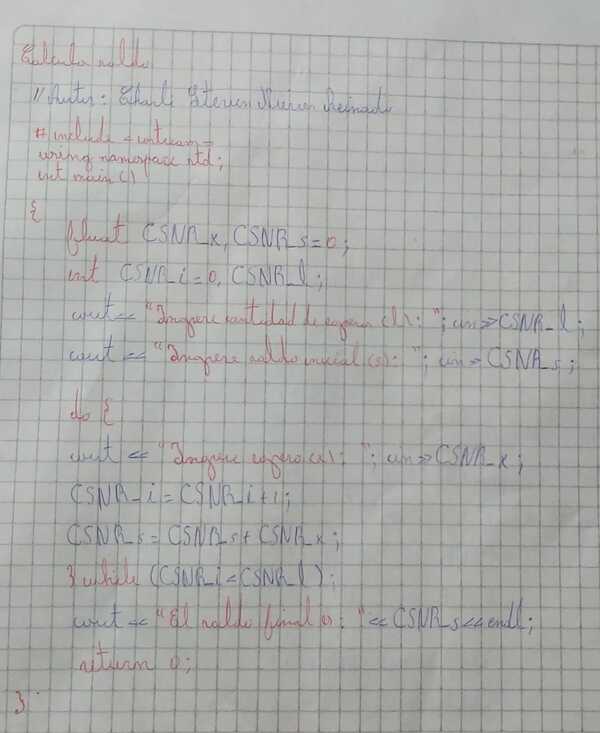 Calcular saldo
// Autor: Steven Reinado
# include <iostream>
using namespace std;
int main ()
{
float CSNR_x, CSNR_s=0;
int CSNR_i=0, CSNR_l;
cout << "Ingrese cantidad de (l): "; cin>>CSNR_l;
cout << "Ingrese saldo inicial (s): "; cin>>CSNR_s;
do {
cout << "Ingrese (x): "; cin>>CSNR_x;
CSNR_i=CSNR_i+1;
CSNR_s=CSNR_s+CSNR_x;
} while (CSNR_i<CSNR_l);
cout << "El saldo final es: "<<CSNR_s<<endl;
return 0;
}